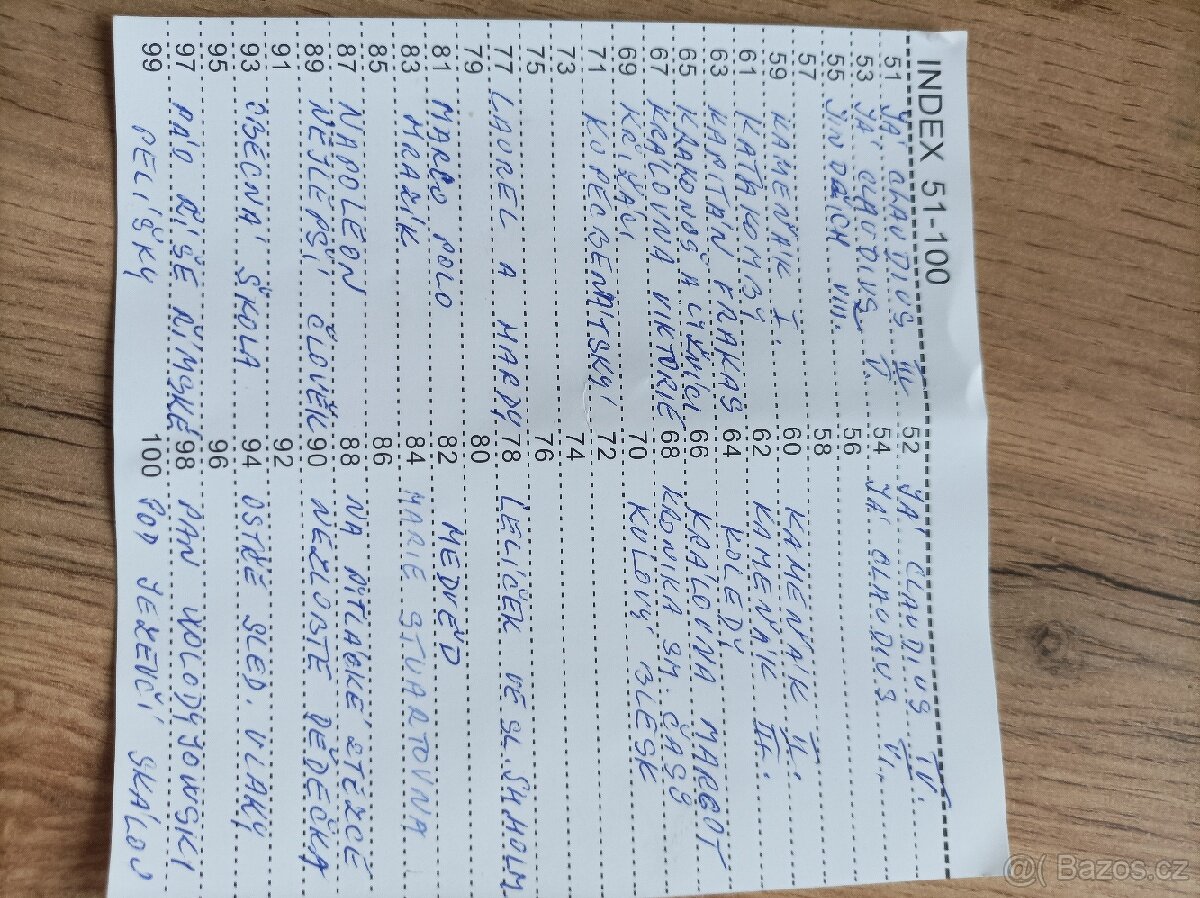 INDEX 51-100
51 JÁ CLAUDIUS III. 52 JÁ CLAUDIUS IV.
53 JÁ CLAUDIUS V. 54 JÁ CLAUDIUS VI.
55 JINDŘICH VIII. 56
57 58
59 KAMEŇÁK I. 60 KAMEŇÁK II.
61 KATAKOMBY 62 KAMEŇÁK III.
63 KAPITÁN KRAKAS 64 KOLEDY
65 KRAKONOŠ A LYŽNÍCI 66 KRÁLOVNA MARGOT
67 KRÁLOVNA VIKTORIE 68 KRONIKA ŽH. ČASŮ
69 KŘIŽÁCI 70 KULOVÝ BLESK
71 KUPEC BENÁTSKÝ 72
73 74
75 76
77 LAUREL A HARDY 78 LELÍČEK VE SL. SH. HOLM
79 80
81 MARCO POLO 82 MEDVĚD
83 MRAZÍK 84 MARIE STUARTOVNA
85 86
87 NAPOLEON 88 NA PYTLÁCKÉ STEZCE
89 NEJLEPŠÍ ČLOVĚK 90 NEZLOBTE DĚDEČKA
91 92
93 OBECNÁ ŠKOLA 94 OSTŘE SLED. VLAKY
95 96
97 PÁD ŘÍŠE ŘÍMSKÉ 98 PAN WOLODYJOWSKI
99 PELÍŠKY 100 POD JEZEVČÍ SKÁLOU
Bazos.cz